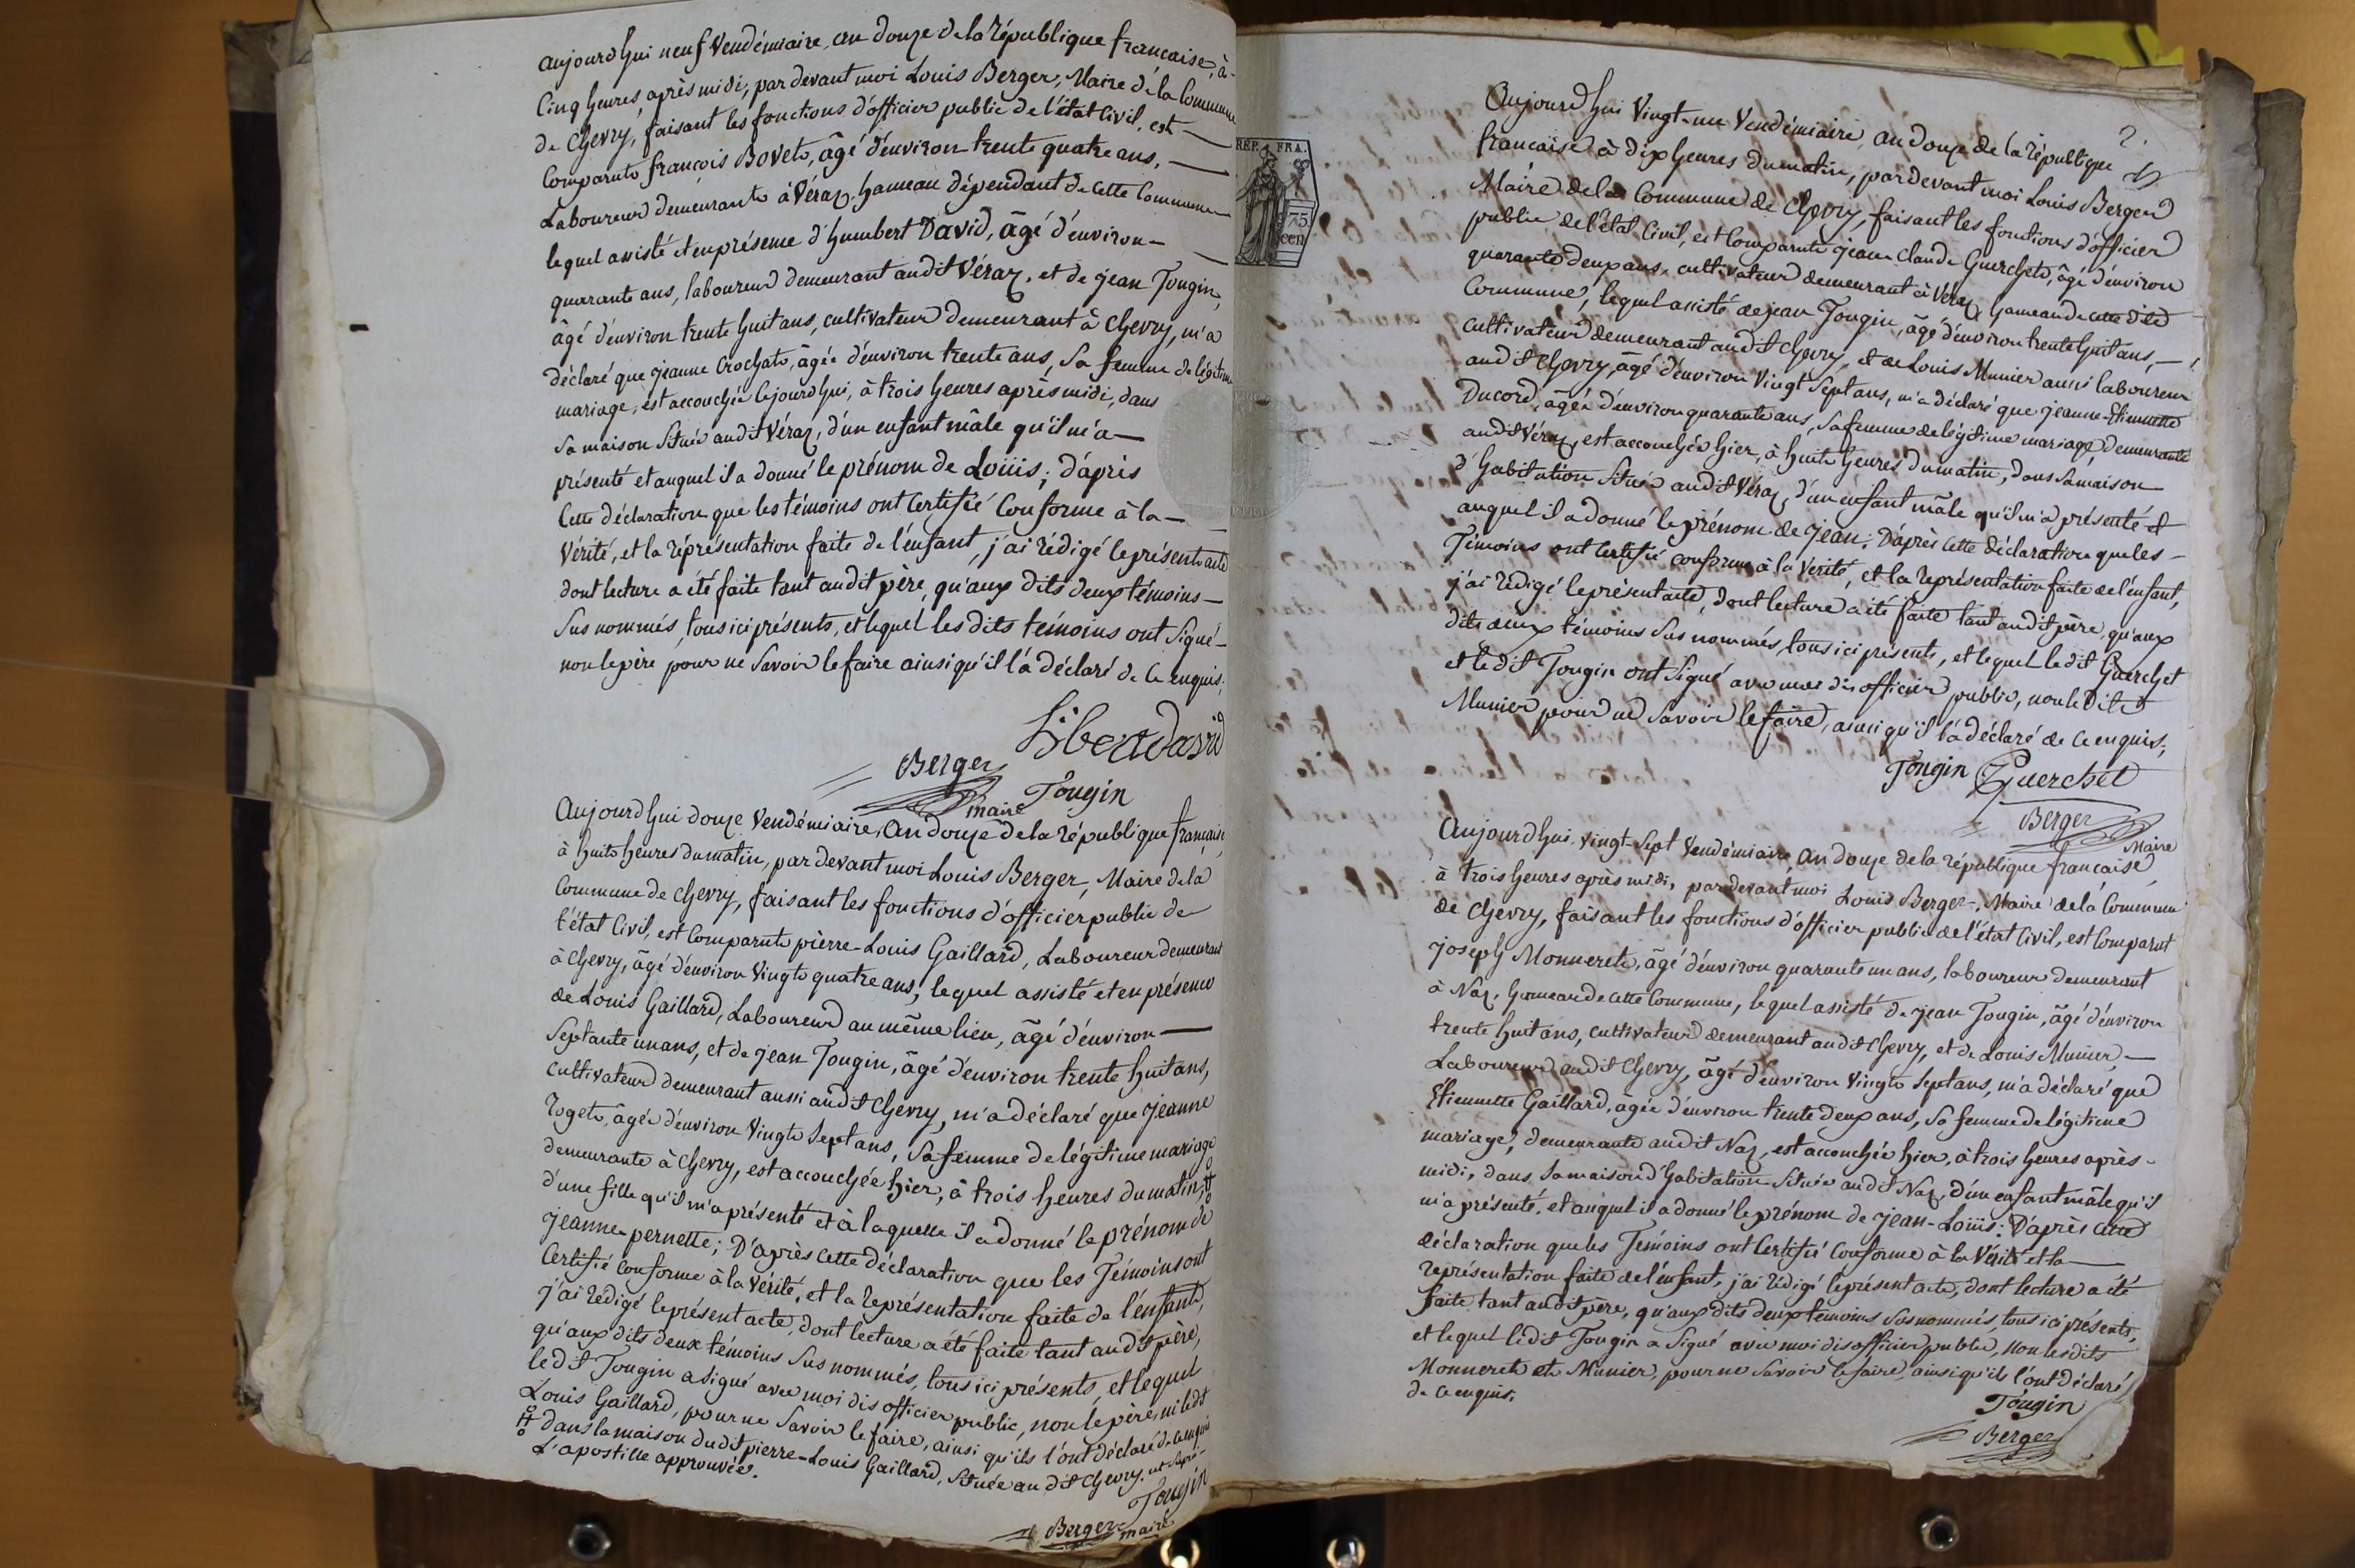 aujourd'hui neuf Vendémiaire, an douze de la République francaise, à
Cinq heures après midi, par devant moi Louis Berger, Maire de la Commune
de Chevry, faisant les fonctions d'officier public de l'état Civil, est
Comparut françois Bovet, âgé d'environ trente quatre ans,
Laboureur demeurant à Véraz, hameau dépendant de cette Commune
lequel assisté et en présence d'humbert David, âgé d'environ
quarante ans, laboureur demeurant audit Véraz, et de jean Tougin,
âgé d'environ trente huit ans, cultivateur demeurant à Chevry, m'a
déclaré que jeanne Crochat, âgée d'environ trente ans, sa femme de légitime
mariage, est accouchée cejourd'hui, à trois heures après midi, dans
sa maison située audit Véraz, d'un enfant mâle qu'il m'a
présenté et auquel il a donné le prénom de Loüis; d'après
Cette déclaration que les témoins ont Certifié Conforme à la
Vérité, et la réprésentation faite de l'énfant, j'ai rédigé le présent acte
dont lecture a été faite tant audit père, qu'aux dits deux témoins
Sus nommés, tous ici présents, et lequel les dits témoins ont Signé
non le père pour ne Savoir le faire ainsi qu'il l'a déclaré de ce enquis;
Berger David
maire Tougin
Aujourd'hui douze Vendémiaire, An douze de la république francaise,
à huit heures du matin, par devant moi Louis Berger, Maire de la
Commune de Chevry, faisant les fonctions d'officier public de
l'état Civil, est Comparut pièrre-Louis Gaillard, Laboureur demeurant
à Chevry, âgé d'environ Vingt quatre ans, lequel assisté et en présence
de Louis Gaillard, Laboureur au même lieu, âgé d'environ
Septante un ans, et de jean Tougin, âgé d'environ trente huit ans,
Cultivateur demeurant aussi audit Chevry, m'a déclaré que jeanne
Roget, âgée d'environ Vingt Sept ans, Sa femme de légitime mariage
demeurante à Chevry, est accouchée hier, à trois heures du matin, #
d'une fille qu'il m'a présenté et à laquelle il a donné le prénom de
jeanne-pernette; D'après cette déclaration que les Témoins ont
Certifié Conforme à la Vérité, et la représentation faite de l'énfant,
j'ai rédigé le présent acte, dont lecture a été faite tant audit père,
qu'aux dits deux témoins Sus nommés, tous ici présents, et lequel
le dit Tougin a signé avec moi dis officier public, non le père, ni ledt
Louis Gaillard, pour ne Savoir le faire, ainsi qu'ils l'ont déclaré de ce enquis
# dans la maison dudit pierre-Louis Gaillard, Située audit Chevry.
L'apostille approuvée.
Tougin
Berger maire
2.
Aujourd'hui Vingt-un Vendémiaire, an douze de la république
francaise à dix heures du matin, par devant moi Louis Berger
Maire de la Commune de Chevry, faisant les fonctions d'officier
public de l'état Civil, est Comparut jean Claude Guerchet, âgé d'environ
quarante deux ans, cultivateur demeurant à Véraz, hameau de cette dite
Commune, lequel assisté de jean Tougin, âgé d'environ trente huit ans,
cultivateur demeurant audit Chevry, et de Louis Munier aussi laboureur
audit Chevry, âgé d'environ Vingt Sept ans, m'a déclaré que jeanne-Etiennette
Ducord, âgée d'environ quarante ans, Sa femme de légitime mariage, demeurante
audit Véraz, est accouchée hier, à huit heures du matin, dans Sa maison
d'habitation Située audit Véraz, d'un enfant mâle qu'il m'a présenté et
auquel il a donné le prénom de jean; D'après cette déclaration que les
Témoins ont Certifié conforme à la Vérité, et la représentation faite de l'énfant,
j'ai rédigé le présent acte, dont lecture a été faite tant audit père, qu'aux
dits deux témoins Sus nommés, tous ici présents, et lequel le dit Guerchet
et le dit Tougin ont Signé avec moi dis officier public, non le dit
Munier pour ne Savoir le faire, ainsi qu'il l'a déclaré de ce enquis;
Tougin Guerchet
Berger
Maire
Aujourd'hui, Vingt-Sept Vendémiaire An douze de la république francaise,
à trois heures après midi, par devant moi Louis Berger, Maire de la Commune
de Chevry, faisant les fonctions d'officier public de l'état Civil, est Comparut
joseph Monneret, âgé d'environ quarante un ans, laboureur demeurant
à Naz, hameau de cette Commune, lequel assisté de jean Tougin, âgé d'environ
trente huit ans, cultivateur demeurant audit Chevry, et de Louis Munier,
Laboureur audit Chevry, âgé d'environ Vingt Sept ans, m'a déclaré que
Etiennette Gaillard, âgée d'environ trente deux ans, Sa femme de légitime
mariage, demeurante audit Naz, est accouchée hier, à trois heures après-
midi, dans Sa maison d'habitation Située audit Naz, d'un enfant mâle qu'il
m'a présenté, et auquel il a donné le prénom de jean-Loüis; D'après cette
déclaration que les Témoins ont Certifié Conforme à la Vérité et la
représentation faite de l'énfant, j'ai rédigé le présent acte, dont lecture a été
faite tant audit père, qu'aux dits deux témoins Sus nommés, tous ici présents,
et lequel ledit Tougin a Signé avec moi dis officier public, Non les dits
Monneret et Munier, pour ne Savoir le faire, ainsi qu'ils l'ont déclaré
de ce enquis.
Tougin
Berger
REP. FRA.
75
cen